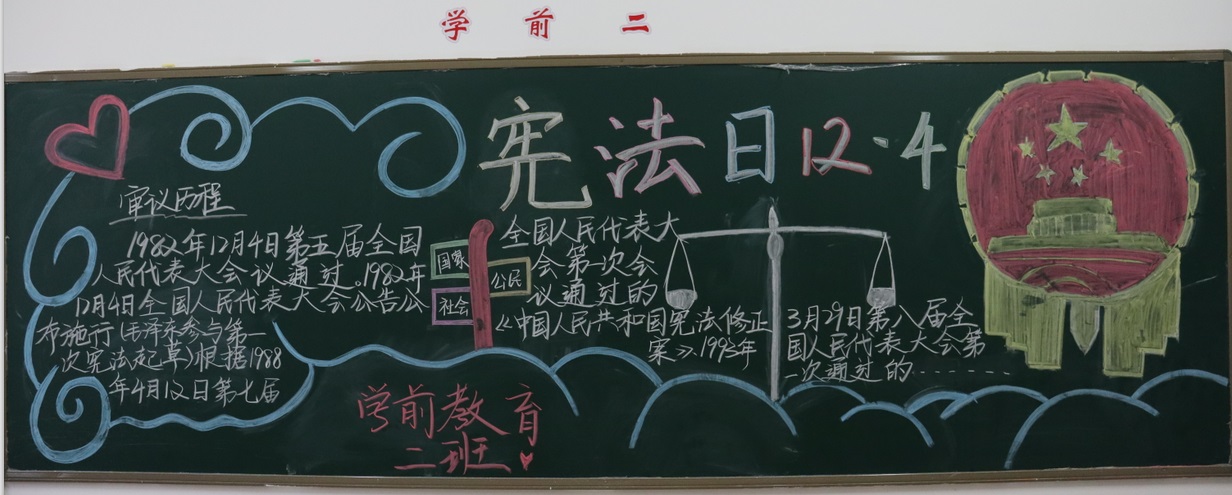 学前二
宪法日12·4
审议历程
1982年12月4日第五届全国
人民代表大会议通过.1982年
12月4日全国人民代表大会公告公
布施行(毛泽东参与第一
次宪法起草)根据1988
年4月12日第七届
国家
公民
社会
全国人民代表大
会第一次会
议通过的
《中国人民共和国宪法修正
案》.1993年
3月29日第八届全
国人民代表大会第
一次通过的………
学前教育
二班